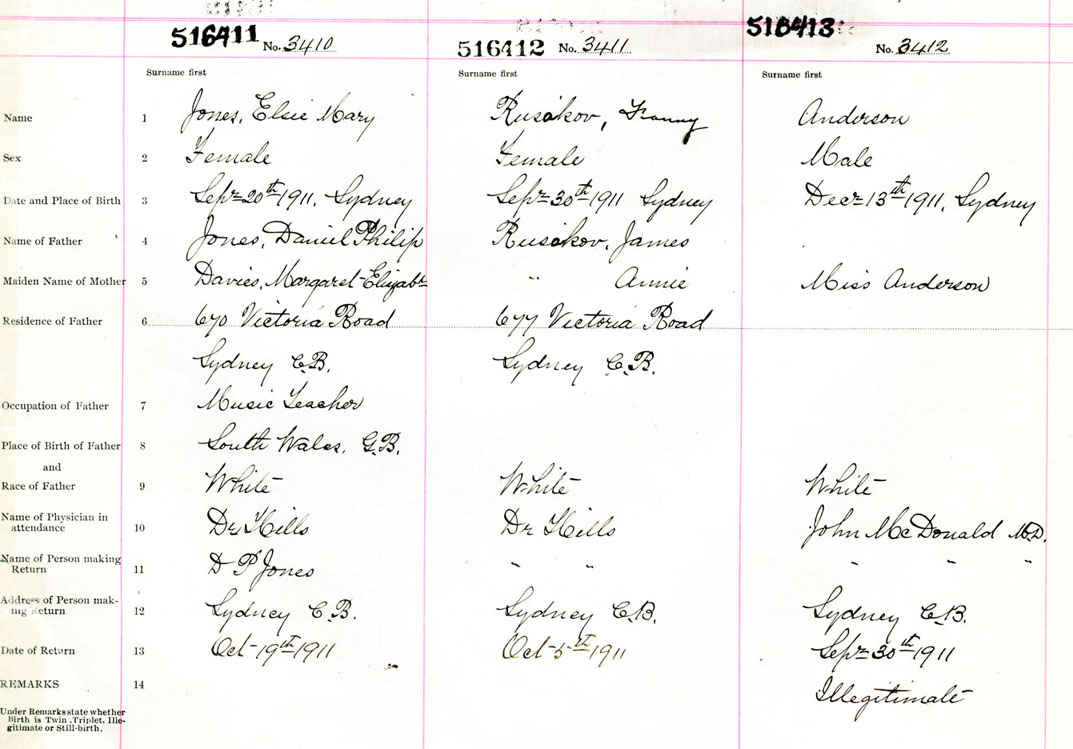 516411 No. 3410 516412 No. 3411 516413 No. 3412
Surname first Surname first Surname first
Name 1 Jones, Elsie Mary Rusakov, Fanny Anderson
Sex 2 Female Female Male
Date and Place of Birth 3 Sept 20th 1911, Sydney Sept 30th 1911 Sydney Dec 13th 1911, Sydney
Name of Father 4 Jones, Daniel Philip Rusakov, James
Maiden Name of Mother 5 Davies, Margaret Elizabt " Annie Miss Anderson
Residence of Father 6 670 Victoria Road 677 Victoria Road
Sydney C.B. Sydney C.B.
Occupation of Father 7 Music Teacher
Place of Birth of Father 8 South Wales, G.B.
and
Race of Father 9 White White White
Name of Physician in
attendance 10 Dr. Hills Dr Hills John McDonald M.D.
Name of Person making
Return 11 D P Jones " " " " "
Address of Person mak-
ing Return 12 Sydney C.B. Sydney C.B. Sydney C.B.
Date of Return 13 Oct 19th 1911 Oct 5th 1911 Sept 30th 1911
REMARKS 14 Illegitimate
Under Remarks state whether
Birth is Twin, Triplet, Ille-
gitimate or Still-birth.